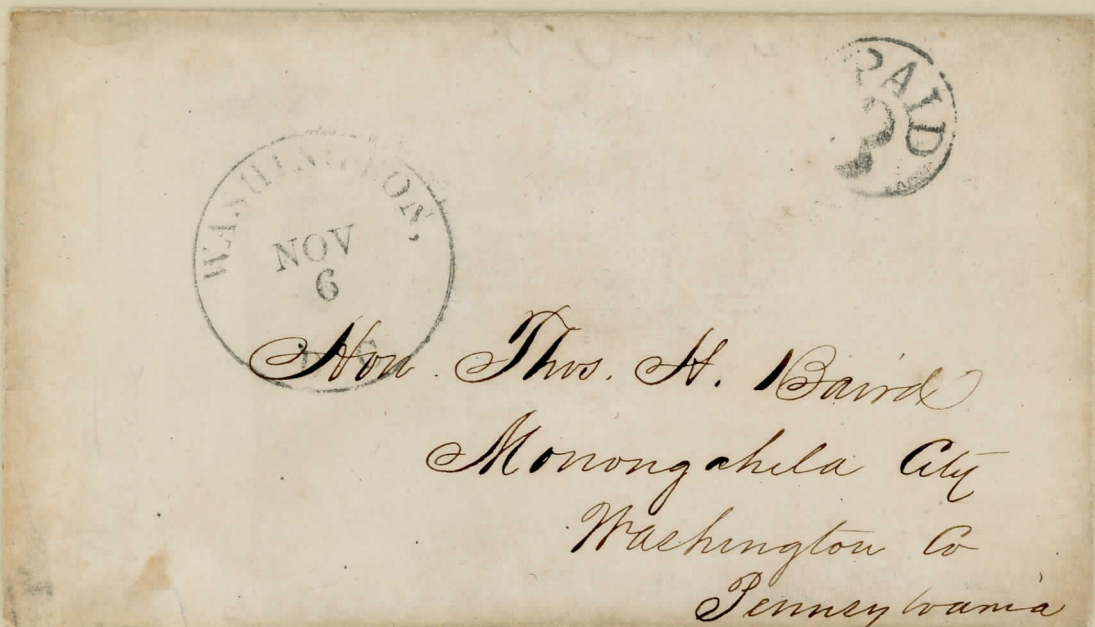 PAID
3
WASHINGTON,
NOV
6
Hon. Thos. H. Baird
Monongahela City
Washington Co
Pennsylvania